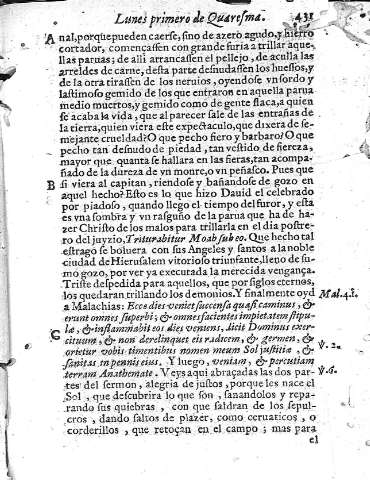 Lunes primero de Quaresma. 431
A nal, porque pueden caerse, sino de azero agudo, y hierro
cortador, començassen con grande furia a trillar aque-
llas paruas; de alli arrancassen el pellejo, de aculla las
arreldes de carne, desta parte desnudassen los huessos, y
de la otra tirassen de los neruios, oyendose vn sordo y
lastimoso gemido de los que entraron en aquella parua
medio muertos, y gemido como de gente flaca, a quien
se acaba la vida, que al parecer sale de las entrañas de
la tierra, quien viera este expectaculo, que dixera de se-
mejante crueldad? O que pecho fiero y barbaro! O que
pecho tan desnudo de piedad, tan vestido de fiereza,
mayor que quanta se hallara en las fieras, tan acompa-
ñado de la dureza de vn monte, o vn peñasco. Pues que
B si viera al capitan, riendose y bañandose de gozo en
aquel hecho? Esto es lo que hizo Dauid el celebrado
por piadoso, quando llego el tiempo del furor, y esta
es vna sombra y vn rasguño de la parua que ha de ha-
zer Christo de los malos para trillarla en el dia postre-
ro del juyzio, Triturabitur Moab sub eo. Que hecho tal
estrago se boluera con sus Angeles y santos a la noble
ciudad de Hierusalem vitorioso triunfante, lleno de su-
mo gozo, por ver ya executada la merecida vengança.
Triste despedida para aquellos, que por siglos eternos,
los quedaran trillando los demonios. Y finalmente oyd Mal.4.1.
a Malachias: Ecce dies veniet succensa quasi caminus, &
erunt omnes superbi; & omnes facientes impietatem stipu-
C la, & inflammabit eos dies veniens, dicit Dominus exer-
cituum, & non derelinquet eis radicem, & germen, &
orietur vobis timentibus nomen meum Sol justitiæ, & V.2.
sanitas in pennis eius, Y luego, veniam, & percutiam
terram Anathemate. Veys aqui abraçadas las dos par- V.6.
tes del sermon, alegria de justos, porque les nace el
Sol, que descubrira lo que son, sanandolos y repa-
rando sus quiebras, con que saldran de los sepul-
cros, dando saltos de plazer, como ceruaticos, o
corderillos, que retoçan en el campo; mas para
el